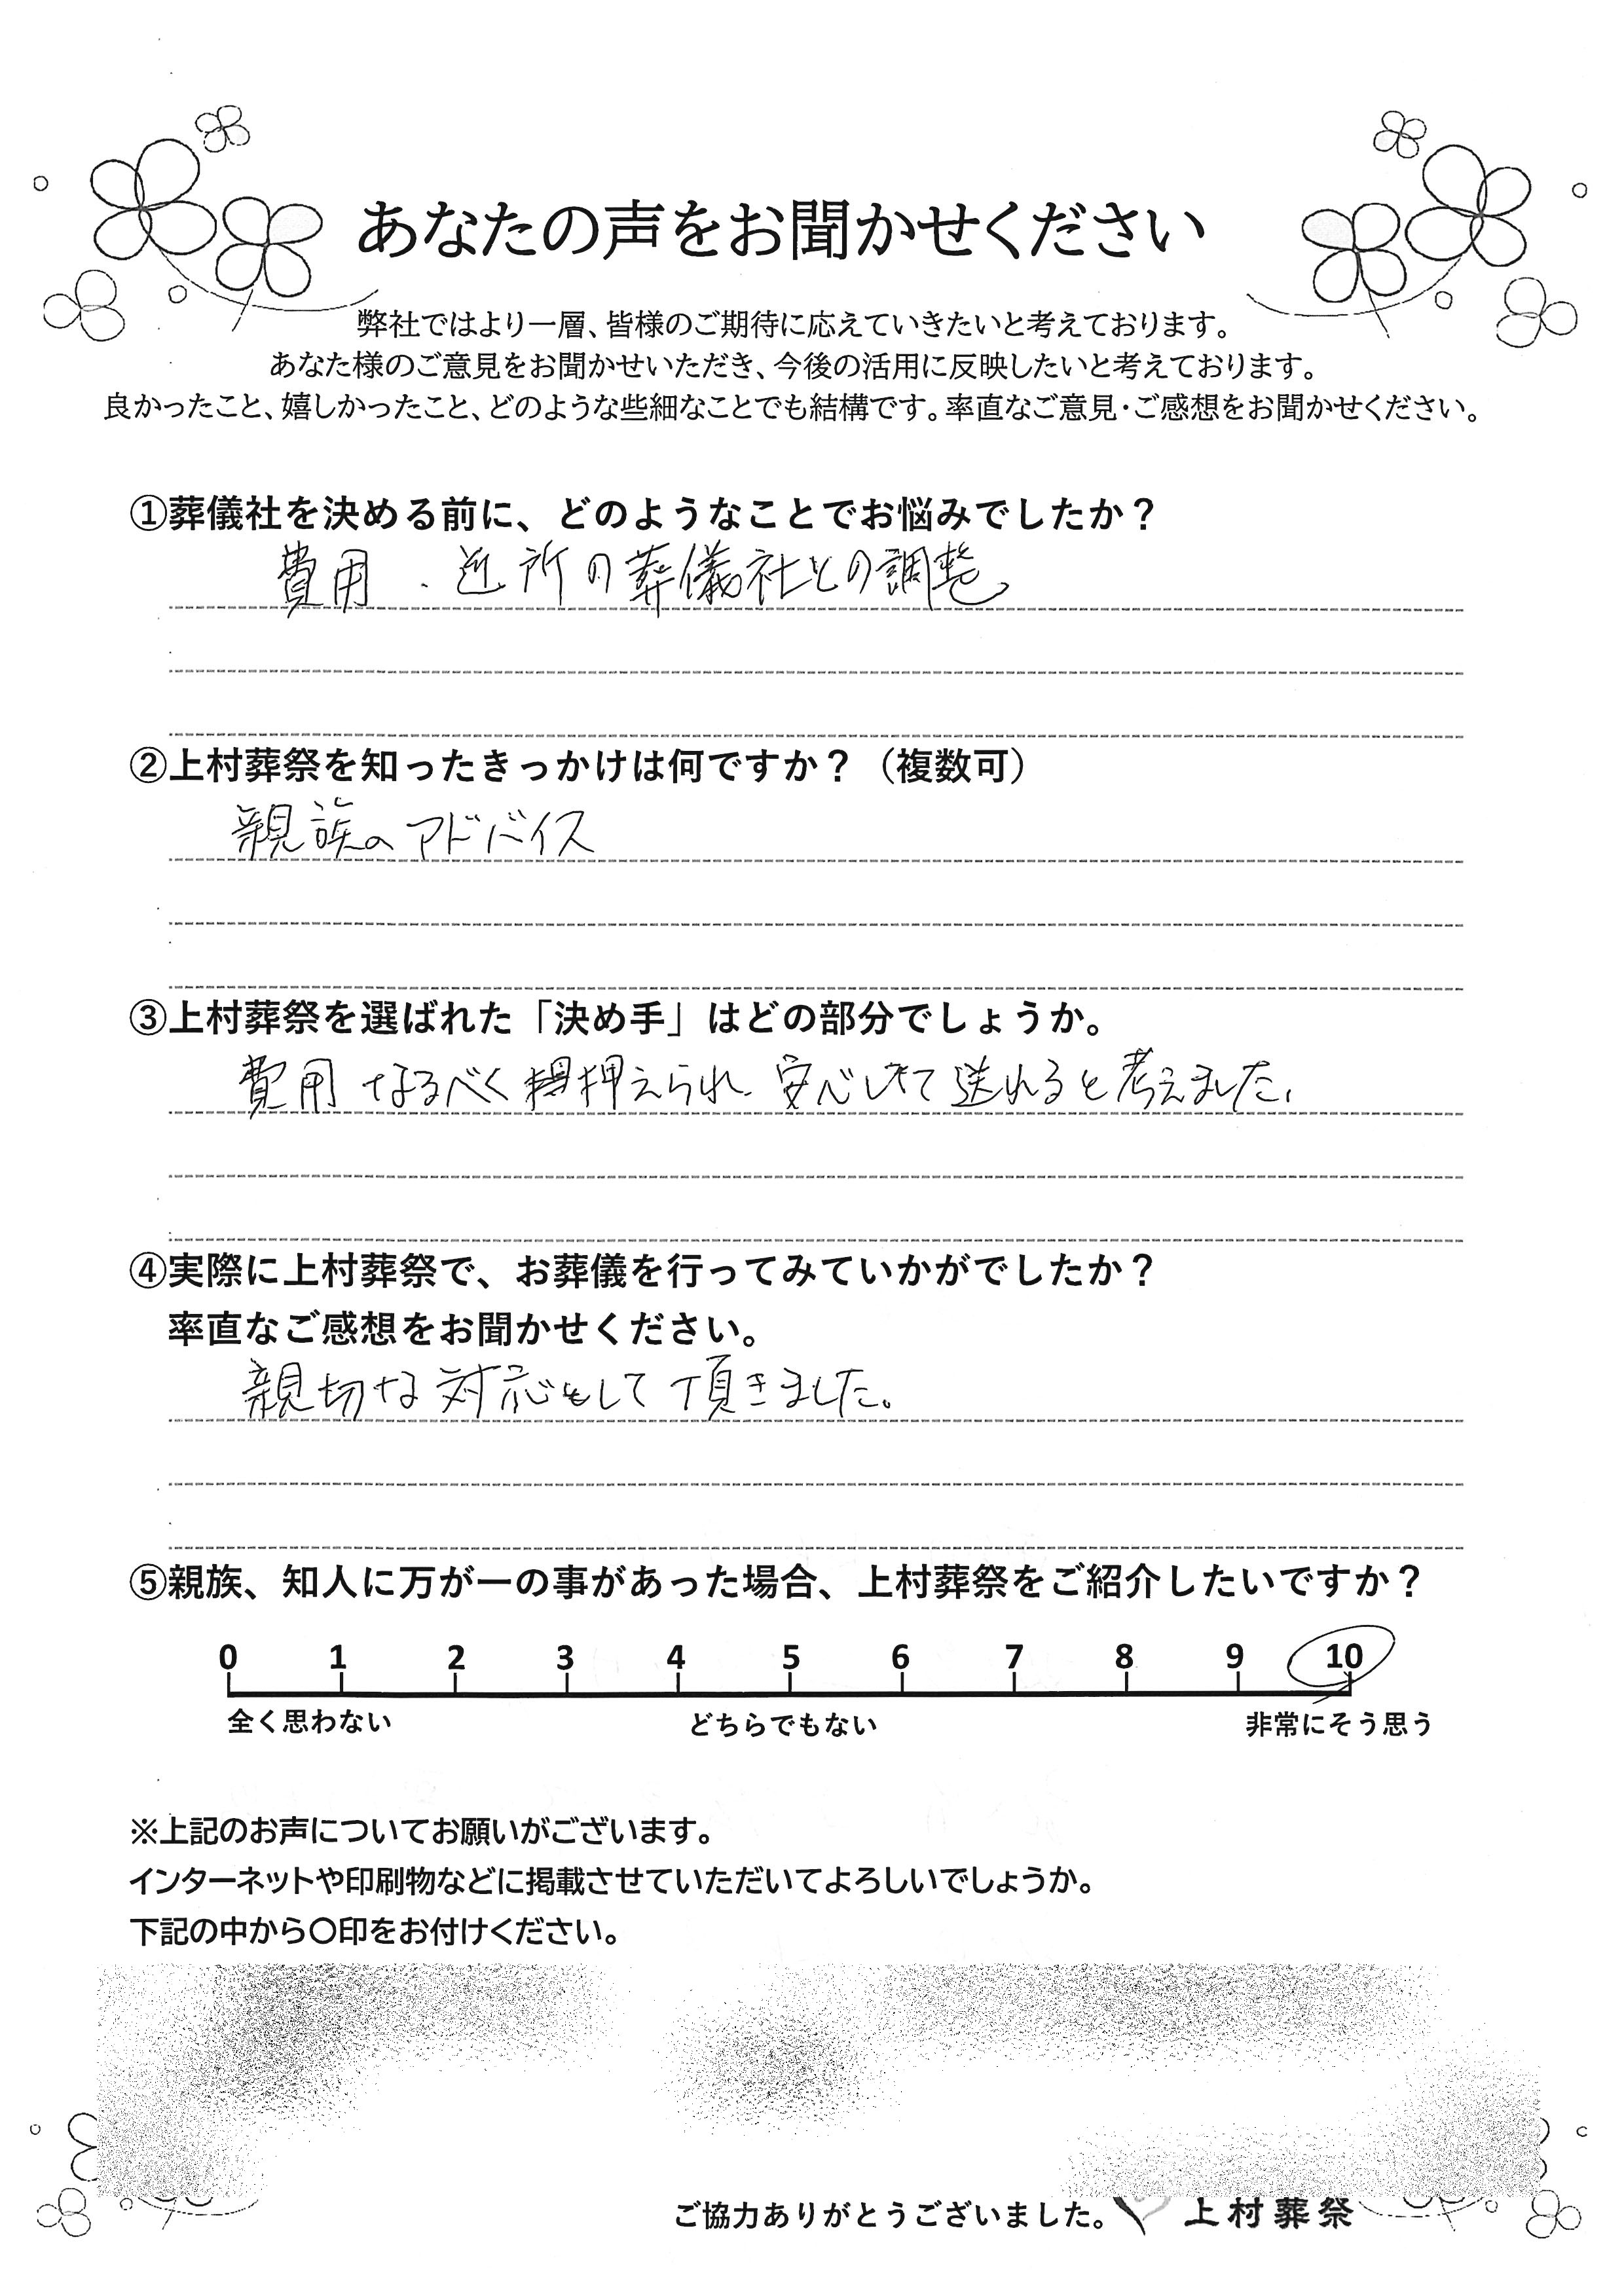 あなたの声をお聞かせください
弊社ではより一層、皆様のご期待に応えていきたいと考えております。
あなた様のご意見をお聞かせいただき、今後の活用に反映したいと考えております。
良かったこと、嬉しかったこと、どのような些細なことでも結構です。率直なご意見・ご感想をお聞かせください。
①葬儀社を決める前に、どのようなことでお悩みでしたか？
費用 . 近所の葬儀社との調整
②上村葬祭を知ったきっかけは何ですか？（複数可）
親族のアドバイス
③上村葬祭を選ばれた「決め手」はどの部分でしょうか。
費用 なるべく 押えられ、安心して送れると考えました、
④実際に上村葬祭で、お葬儀を行ってみていかがでしたか？
率直なご感想をお聞かせください。
親切な対応をして頂きました。
⑤親族、知人に万が一の事があった場合、上村葬祭をご紹介したいですか？
0 1 2 3 4 5 6 7 8 9 10
全く思わない どちらでもない 非常にそう思う
※上記のお声についてお願いがございます。
インターネットや印刷物などに掲載させていただいてよろしいでしょうか。
下記の中から〇印をお付けください。
ご協力ありがとうございました。 上村葬祭